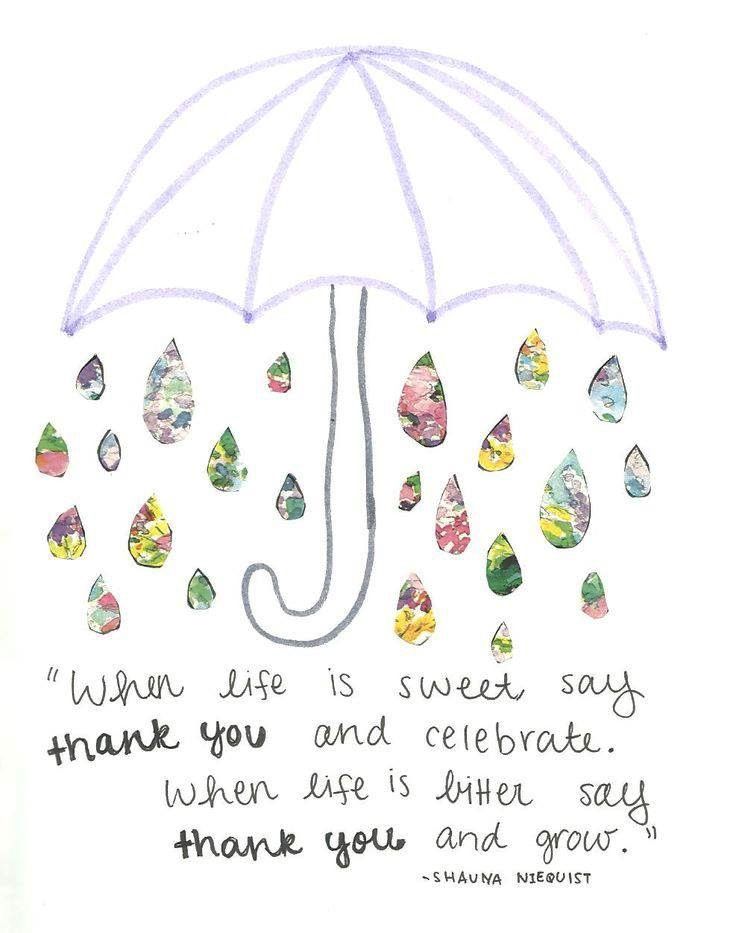 "When life is sweet, say
thank you and celebrate.
When life is bitter say
thank you and grow."
-SHAUNA NIEQUIST